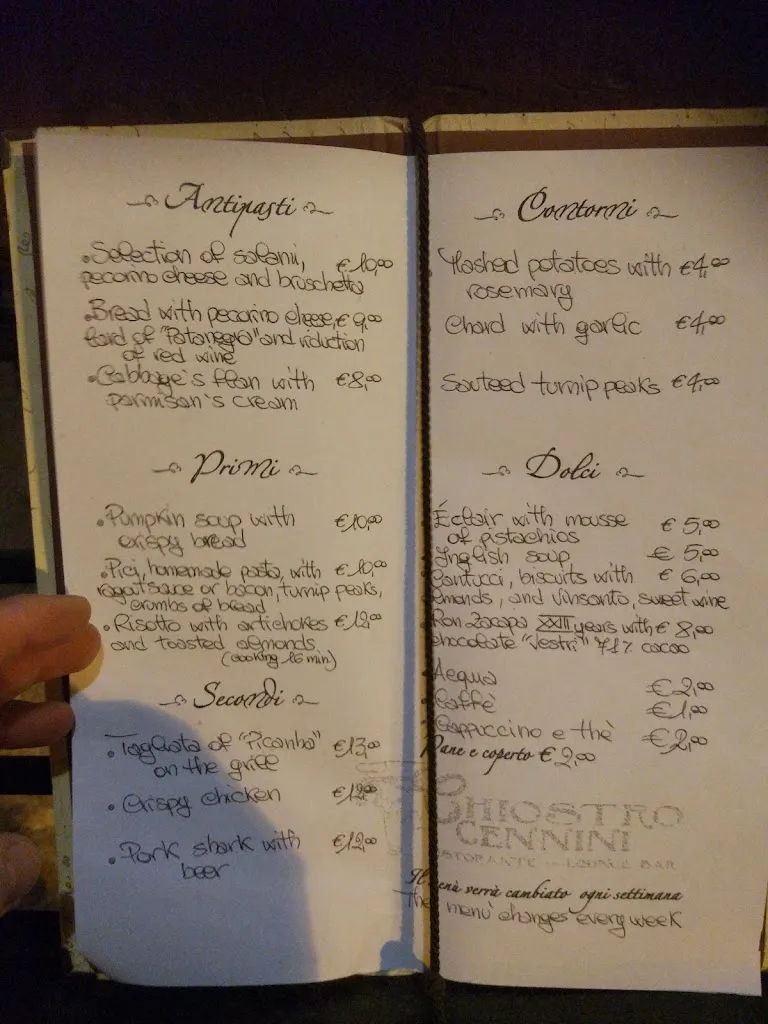 Antipasti
• Selection of salami, €10,00
pecorino cheese and bruschetta
• Bread with pecorino cheese, € 9,00
lard of "Patanegra" and riduction
of red wine
• Cabbage's flan with €8,00
parmisan's cream
Primi
• Pumpkin soup with €10,00
crispy bread
• Pici, homemade pasta, with €10,00
ragout sauce or bacon, turnip peaks,
crombs of bread
• Risotto with artichokes €12,00
and toasted almonds
(cooking 16 min)
Secondi
• Tagliata of "Picanha" €13,00
on the grill
• Crispy chicken €12,00
• Pork shark with €12,00
beer
Contorni
Mashed potatoes with €4,00
rosemary
Chard with garlic €4,00
Sauteed turnip peaks €4,00
Dolci
Éclair with mousse € 5,00
of pistachios
Inglish soup € 5,00
Cantucci, biscuits with € 6,00
almonds, and vinsanto, sweet wine
Ron Zacapa XXIII years with € 8,00
chocolate "Vestri" 71% cacao
Aequa €2,00
Caffè €1,00
Cappuccino e thè €2,00
Pane e coperto € 2,00
CHIOSTRO
CENNINI
RISTORANTE - LOUNGE BAR
Il menù verrà cambiato ogni settimana
The menù changes every week